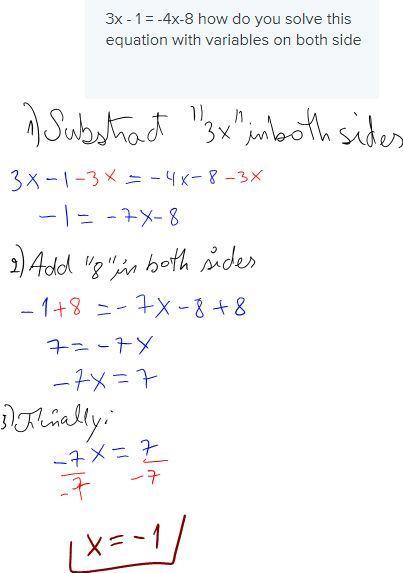 3x - 1 = -4x-8 how do you solve this
equation with variables on both side
1) Substract "3x" in both sides
3x-1-3x = -4x-8-3x
-1 = -7x-8
2) Add "8" in both sides
-1+8 = -7x-8+8
7 = -7x
-7x = 7
3) Finally:
-7x = 7
-7 -7
x = -1